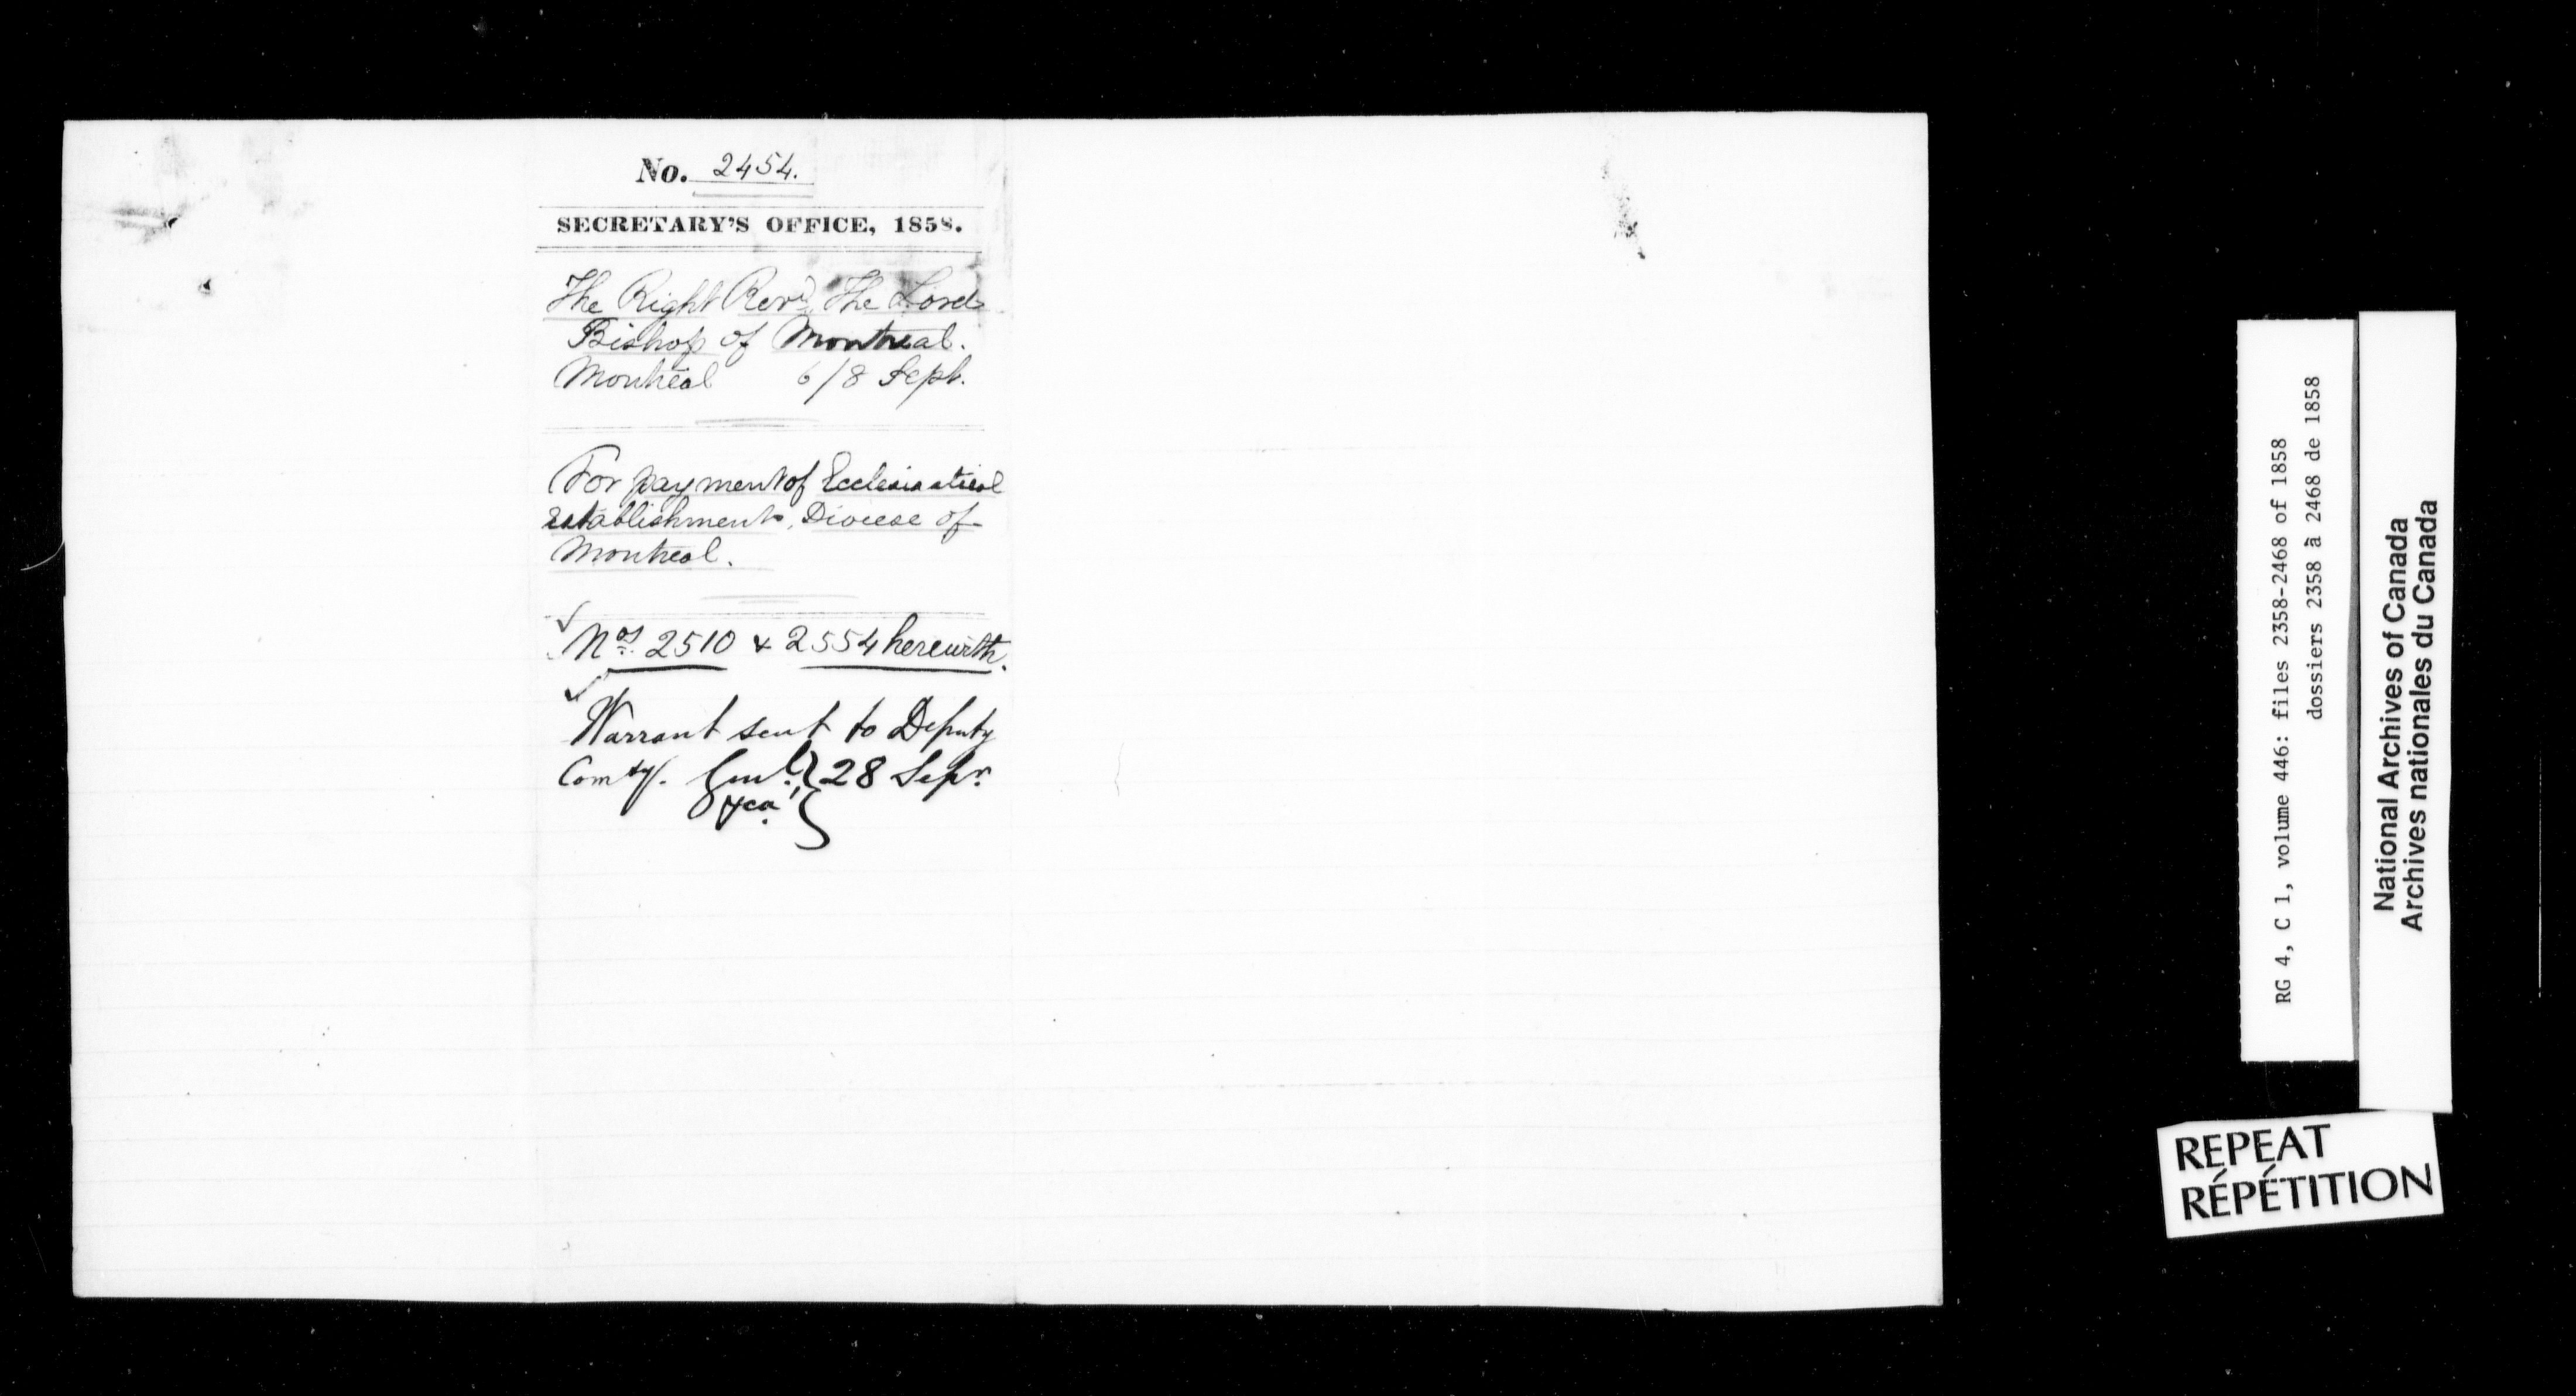 No. 2454.
SECRETARY'S OFFICE, 1858.
The Right Revd. The Lord
Bishop of Montreal.
Montreal 6/8 Sept.
For payment of Ecclesiastical
Establishment, Diocese of
Montreal.
Nos. 2510 & 2554 herewith.
Warrant sent to Deputy
Comsy. Genl. 28 Sepr.
RG 4, C 1, volume 446: files 2358-2468 of 1858
dossiers 2358 à 2468 de 1858
National Archives of Canada
Archives nationales du Canada
REPEAT
RÉPÉTITION